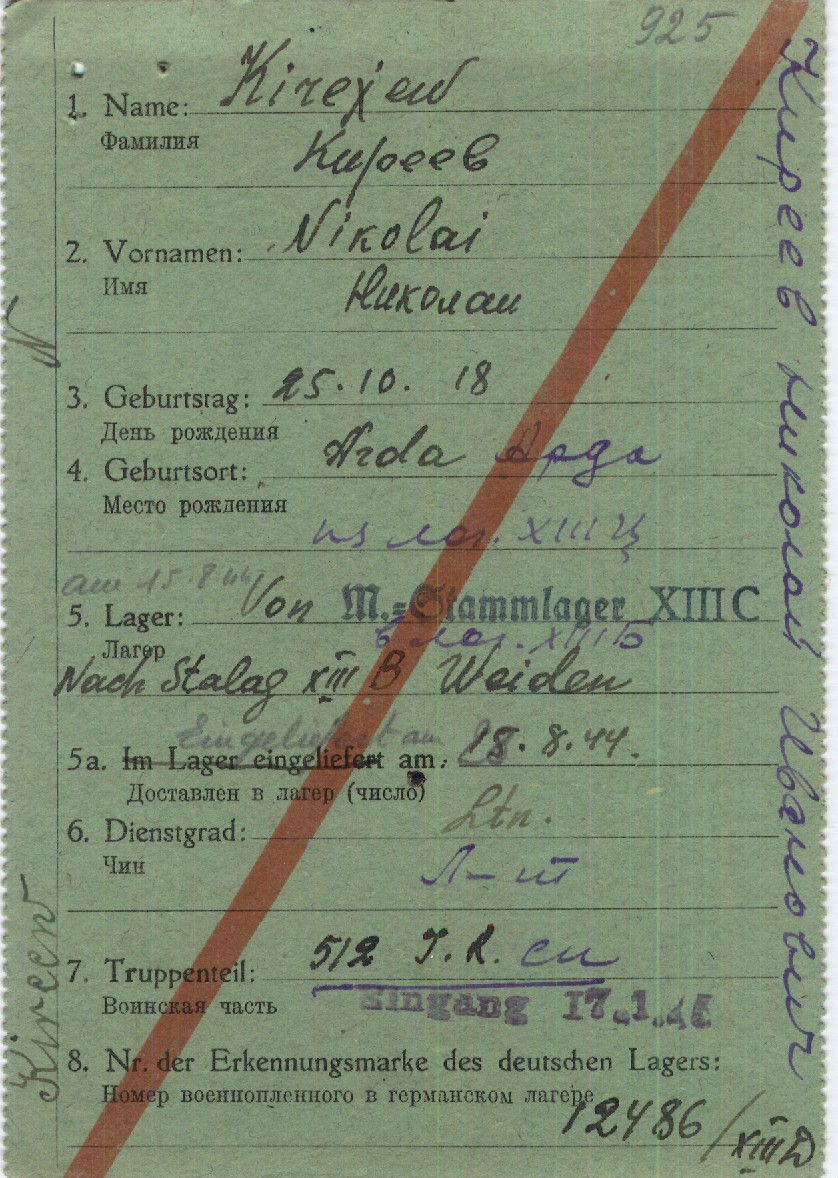 925
1. Name: Kirejew
Фамилия
Киреев
2. Vornamen: Nikolai
Имя
Николаи
3. Geburtstag: 25.10. 18
День рождения
4. Geburtsort: Arda Арда
Место рождения
из лаг. XIII Ц
am 15.8.44
5. Lager: Von M.=Stammlager XIII C
Лагер
в лаг. XIII Б
Nach Stalag XIII B Weiden
Eingeliefert am
5a. Im Lager eingeliefert am: 18.8.44.
Доставлен в лагер (число)
6. Dienstgrad: Ltn.
Чин
Л-т
7. Truppenteil: 512 J.R. сп
Воинская часть
Eingang 17.1.45
8. Nr. der Erkennungsmarke des deutschen Lagers:
Номер военнопленного в германском лагере
12486/XIII D
Киреев Николай Иванович
N
Kireew